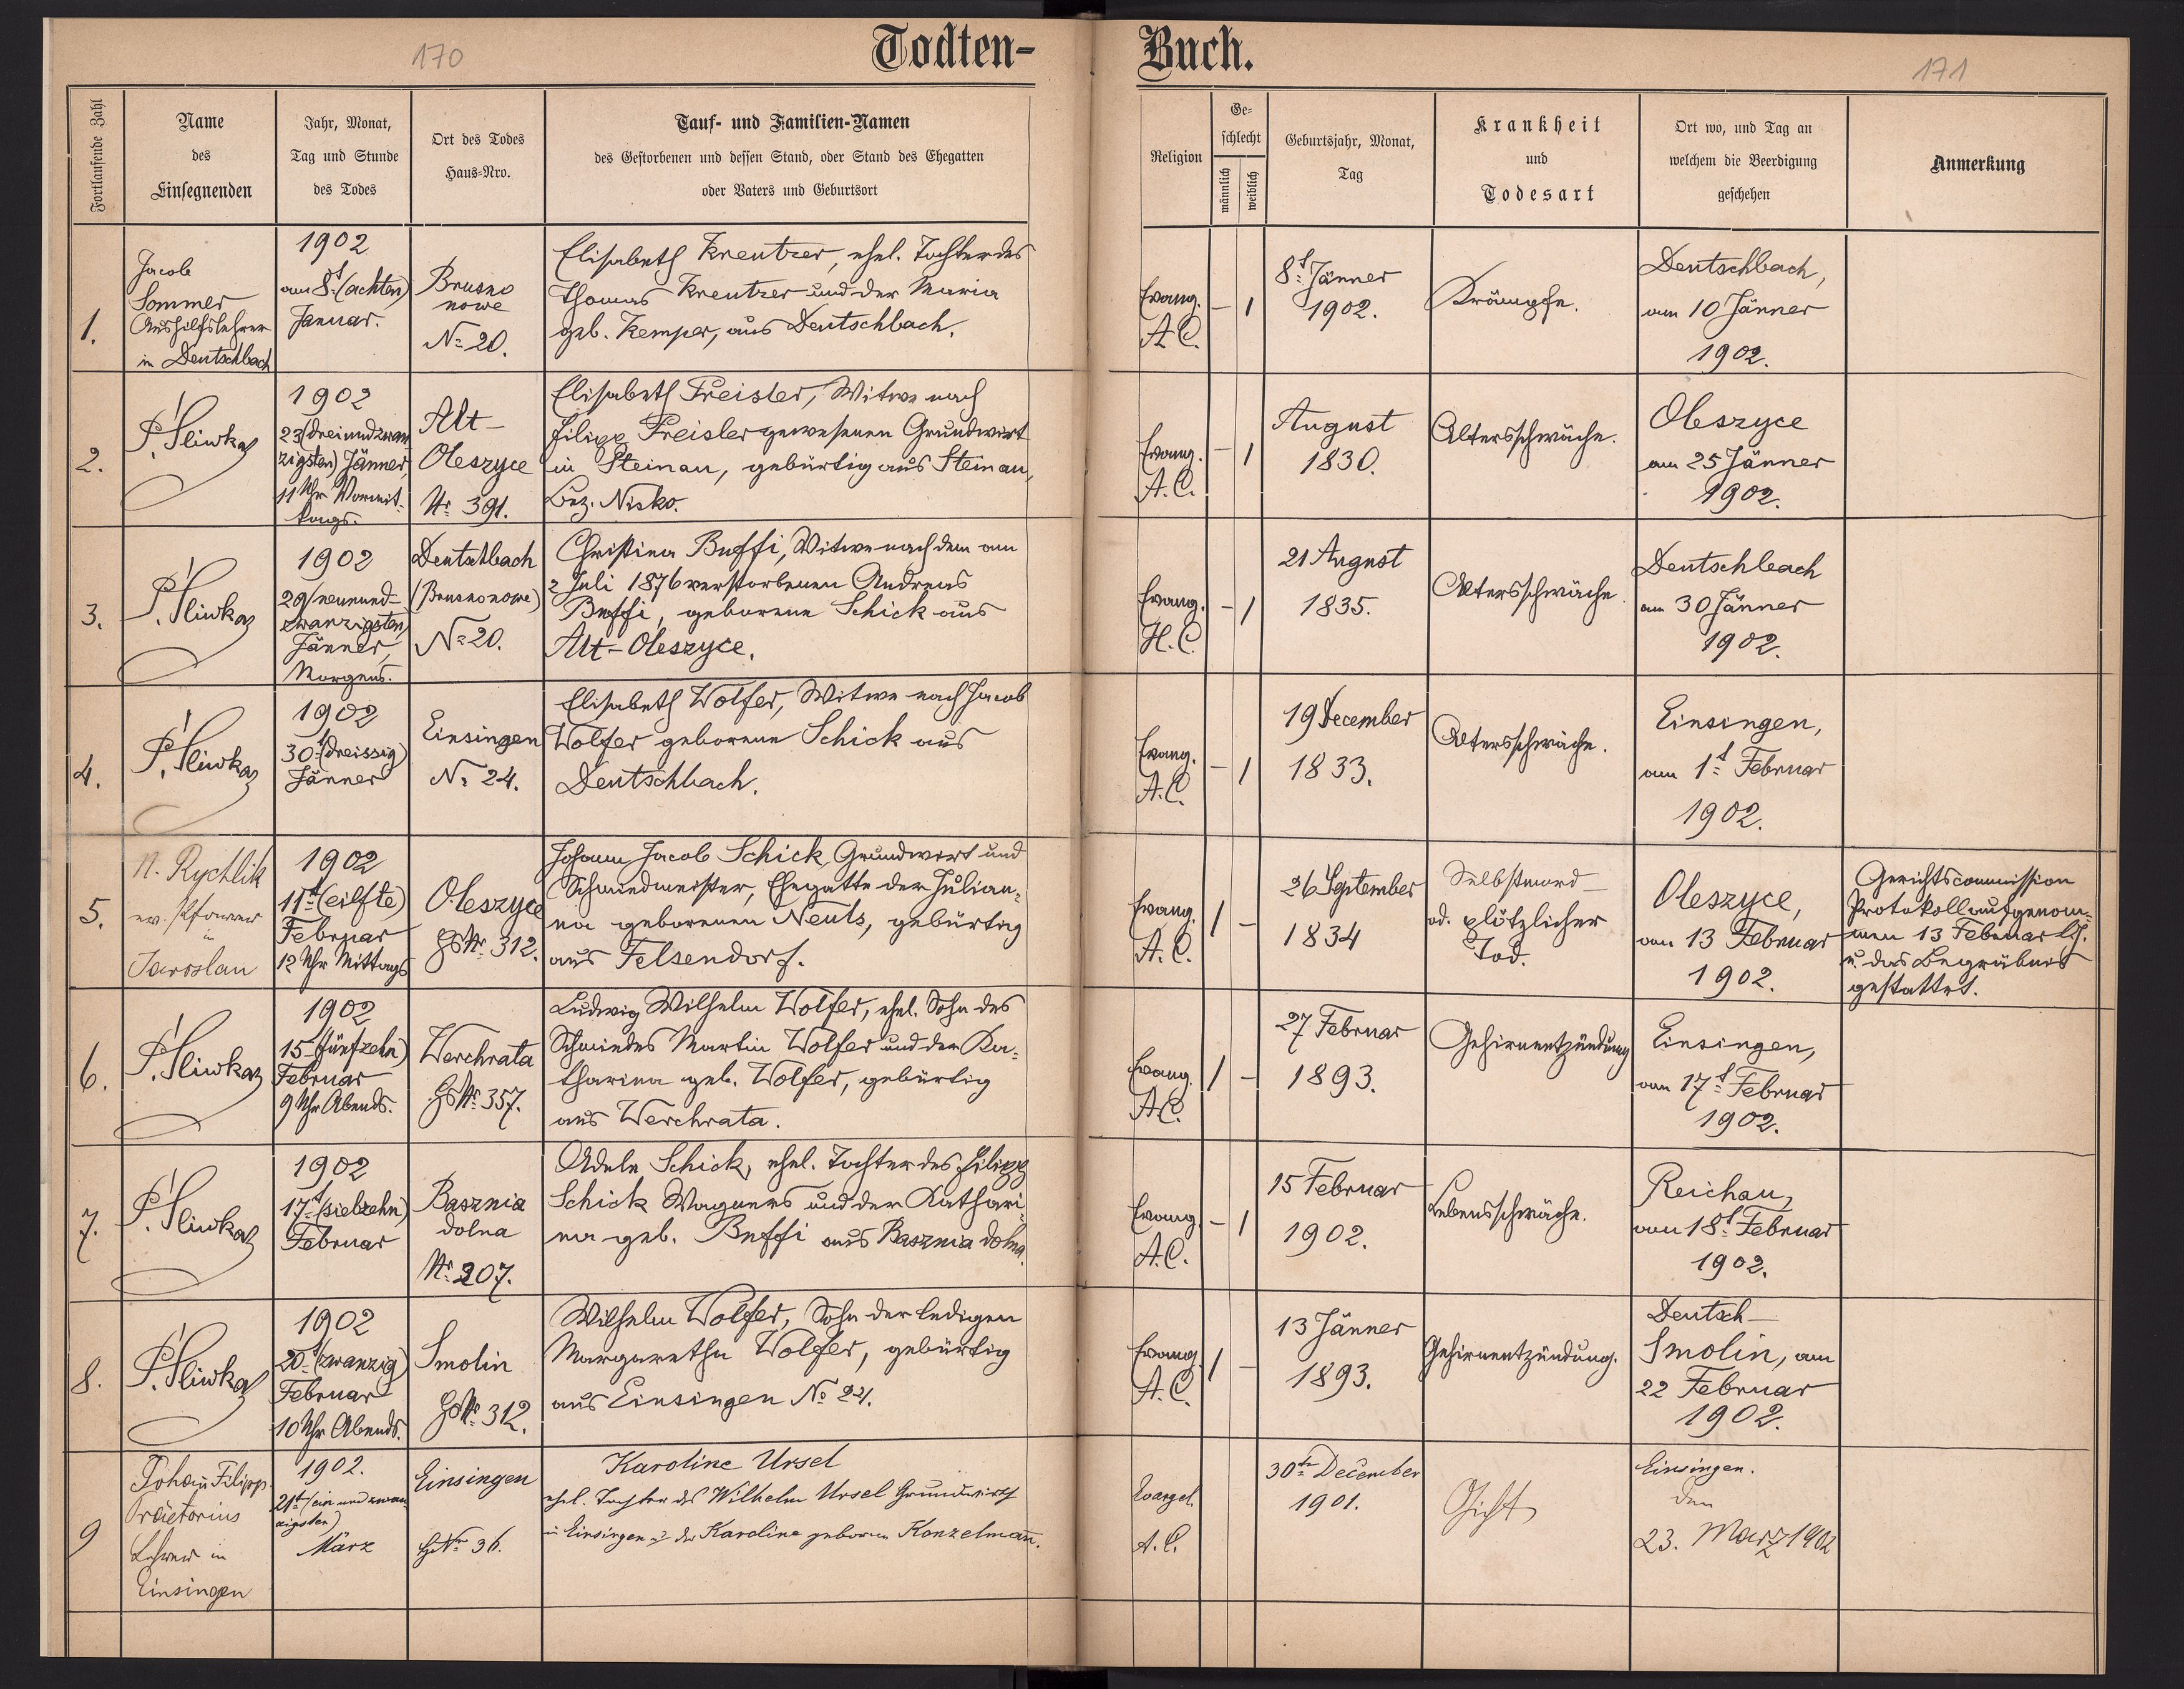 170
Todten-
Buch.
171
Fortlaufende Zahl
Name
des
Einsegnenden
Jahr, Monat,
Tag und Stunde
des Todes
Ort des Todes
Haus-Nro.
Tauf- und Familien-Namen
des Gestorbenen und dessen Stand, oder Stand des Ehegatten
oder Vaters und Geburtsort
Religion
Ge-
schlecht
männlich
weiblich
Geburtsjahr, Monat,
Tag
Krankheit
und
Todesart
Ort wo, und Tag an
welchem die Beerdigung
geschehen
Anmerkung
1.
Jacob
Sommer
Aushilfslehrer
in Deutschbach
1902
am 8t (achten)
Januar.
Brusno
nowe
No 20.
Elisabeth Kreutzer, ehel. Tochter des
Thomas Kreutzer und der Maria
geb. Kemper, aus Deutschbach.
Evang.
A.C.
– 1
8t Jänner
1902.
Krämpfe.
Deutschbach,
am 10 Jänner
1902.
2.
P. Sliwka
1902
23 (dreiundzwan
zigsten) Jänner
11 Uhr Vormit-
tags.
Alt-
Oleszyce
Nr. 391.
Elisabeth Preisler, Witwe nach
Filipp Preisler gewesenen Grundwirt
in Steinau, gebürtig aus Steinau,
Bez. Nisko.
Evang.
A.C.
– 1
August
1830.
Altersschwäche.
Oleszyce
am 25 Jänner
1902.
3.
P. Sliwka
1902
29 (neunund-
zwanzigsten)
Jänner,
Morgens.
Deutschbach
(Brusno nowe)
No 20.
Christina Buffi, Witwe nach dem am
2 Juli 1876 verstorbenen Andreas
Buffi, geborene Schick aus
Alt-Oleszyce.
Evang.
H.C.
– 1
21 August
1835.
Altersschwäche.
Deutschbach
am 30 Jänner
1902.
4.
P. Sliwka
1902
30t (dreissig)
Jänner
Einsingen
No 24.
Elisabeth Wolfer, Witwe nach Jacob
Wolfer geborene Schick aus
Deutschbach.
Evang.
A.C.
– 1
19 December
1833.
Altersschwäche.
Einsingen,
am 1t Februar
1902.
5.
N. Rychlik
ev. Pfarrer
in
Jaroslau
1902
11t (eilfte)
Februar
12 Uhr Mittags
Oleszyce
HsNr. 312.
Johann Jacob Schick, Grundwirt und
Schmiedmeister, Ehegatte der Julian-
na geborenen Neuls, gebürtig
aus Felsendorf.
Evang.
A.C.
1 –
26 September
1834
Selbstmord
od. plötzlicher
Tod.
Oleszyce,
am 13 Februar
1902.
Gerichtscommission
Protokoll aufgenom-
men 13 Februar l.J.
u. das Begräbnis
gestattet.
6.
P. Sliwka
1902
15 (fünfzehn)
Februar
9 Uhr Abends.
Werchrata
HsNr. 357.
Ludwig Wilhelm Wolfer, ehel. Sohn des
Schmiedes Martin Wolfer und der Ka-
tharina geb. Wolfer, gebürtig
aus Werchrata.
Evang.
A.C.
1 –
27 Februar
1893.
Gehirnentzündung
Einsingen,
am 17t Februar
1902.
7.
P. Sliwka
1902
17t (siebzehn)
Februar
Basznia
dolna
Nr. 207.
Adele Schick, ehel. Tochter des Filipp
Schick Wagners und der Kathari
na geb. Buffi aus Basznia dolna.
Evang.
A.C.
– 1
15 Februar
1902.
Lebensschwäche.
Reichau,
am 18t Februar
1902.
8.
P. Sliwka
1902
20t (zwanzig)
Februar
10 Uhr Abends.
Smolin
HsNr. 312.
Wilhelm Wolfer, Sohn der ledigen
Margaretha Wolfer, gebürtig
aus Einsingen No 24.
Evang.
A.C.
1 –
13 Jänner
1893.
Gehirnentzündung.
Deutsch-
Smolin, am
22 Februar
1902.
9
Johañ Filipp
Praetorius
Lehrer in
Einsingen
1902.
21t (ein und zwan
zigsten)
März
Einsingen
HsNr 36.
Karoline Ursel
ehel. Tochter des Wilhelm Ursel Grundwirth
in Einsingen u der Karoline geboren Konzelmañ.
Evangel.
A.C.
30ten December
1901.
Gicht
Einsingen.
den
23. März 1902